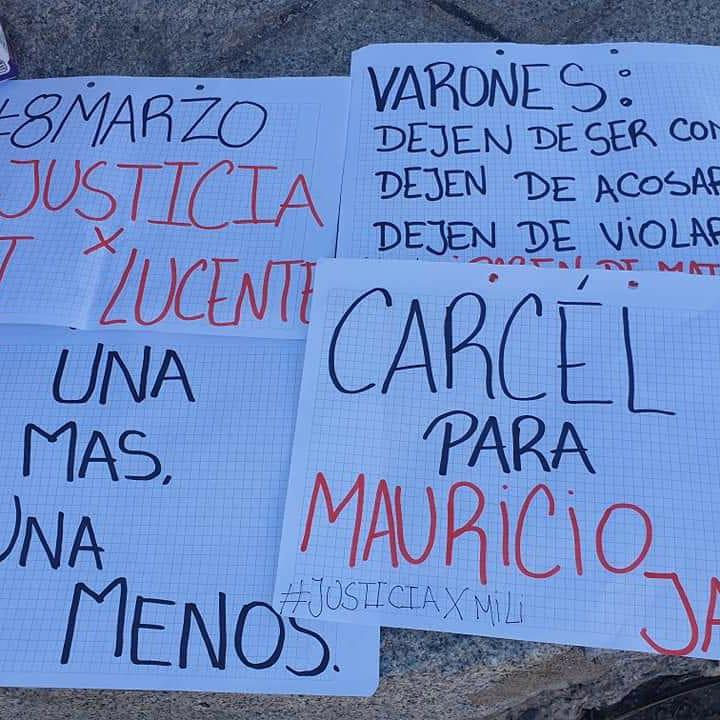 #8MARZO
JUSTICIA
X LUCENTE
VARONES:
DEJEN DE SER
DEJEN DE ACOSAR
DEJEN DE VIOLAR
DE MAT
UNA
MAS,
UNA
MENOS.
CARCÉL
PARA
MAURiCiO
JA
#JUSTICIAXMiLi